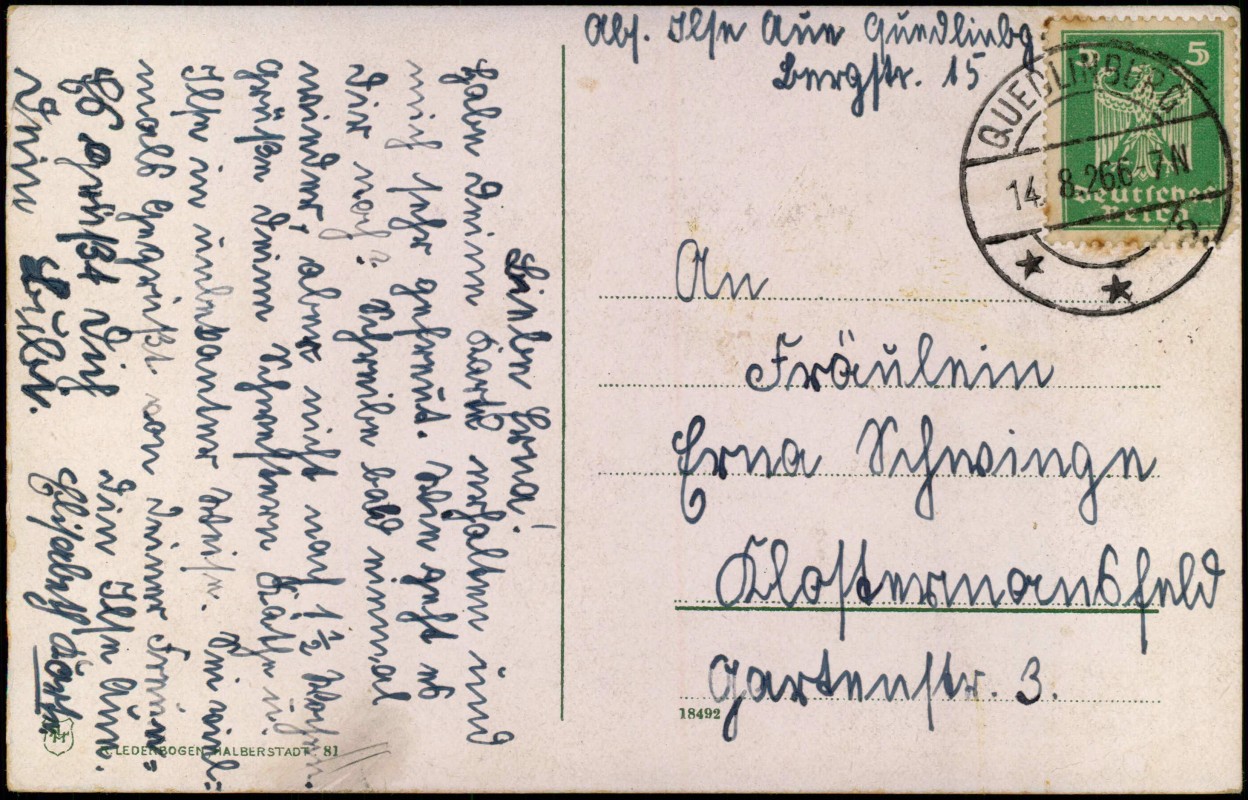 Abs. Ilse Aue Quedlinbg
Bergstr. 15
5 5
Deutsches
Reich
QUEDLINBURG
14.8.26 6-7N
Liebe Erna!
Habe Deine Karte erhalten und
mich sehr gefreut. Wie geht es
Dir noch? Schreibe bald einmal
wieder, aber nicht nach 1½ Wochen.
Grüße Deine Schwestern Käthe u.
Ilse in unbekannter Weise. Sei viel=
mals gegrüßt von Deiner Freun=
din Ilse Aue.
Es grüßt Dich
Deine
Elisabeth
An
Fräulein
Erna Schwinge
Klostermansfeld
Gartenstr. 3.
18492
LEDERBOGEN, HALBERSTADT 81